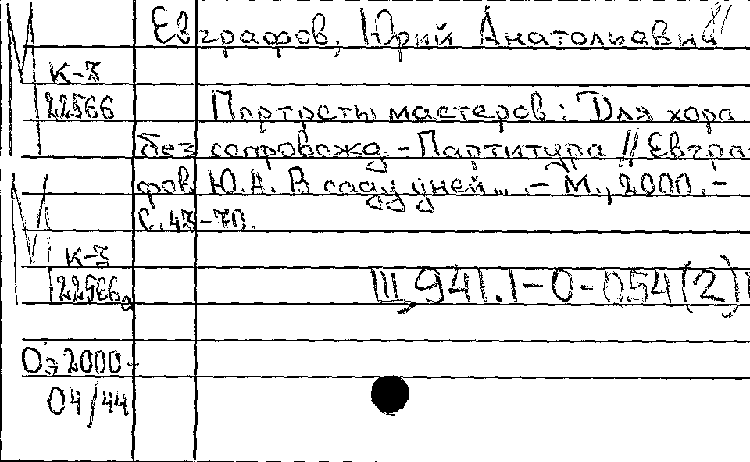 Евграфов, Юрий Анатольевич
К-3
22566
Портреты мастеров: Для хора
без сопровожд.-Партитура // Евгра-
фов Ю.А. В саду дней... .- М., 2000.-
С.43-70.
К-3
22566а
III, 941.1-0-054(2)1
Оэ2000-
04/44